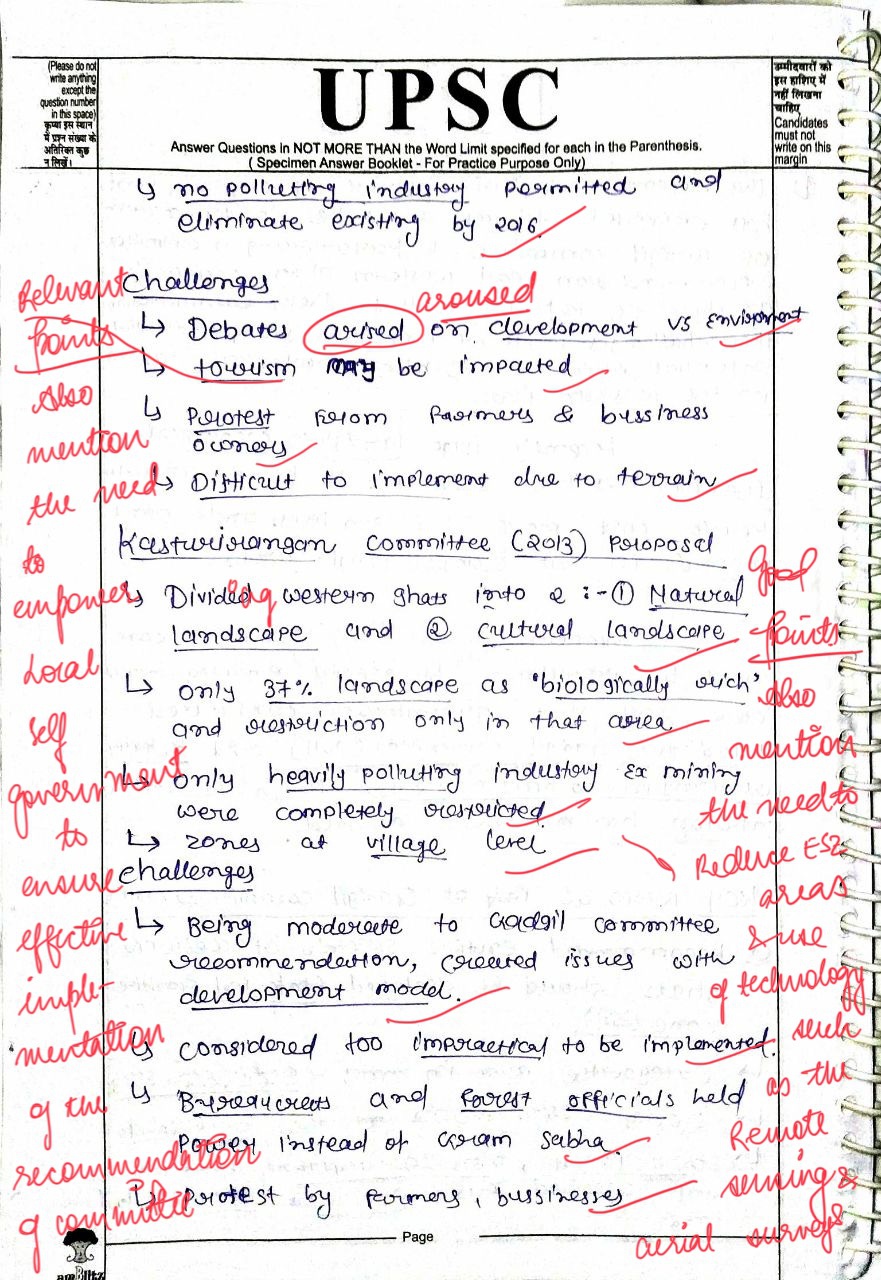 (Please do not
write anything
except the
question number
in this space)
कृपया इस स्थान
में प्रश्न संख्या के
अतिरिक्त कुछ
न लिखें।
UPSC
Answer Questions in NOT MORE THAN the Word Limit specified for each in the Parenthesis.
( Specimen Answer Booklet - For Practice Purpose Only)
उम्मीदवारों को
इस हाशिए में
नहीं लिखना
चाहिए
Candidates
must not
write on this
margin
↳ no polluting industry permitted and
eliminate existing by 2016.
Challenges
↳ Debates arised on development vs environment
aroused
↳ tourism may be impacted
↳ Protest from farmers & bussiness
owners
↳ Difficult to implement due to terrain
Relevant
Points
Also
mention
the need
to
empower
Local
Self
government
to
ensure
effective
imple-
mentation
of the
recommendation
of committee
Kasturirangan committee (2013) proposal
↳ Divided western ghats into 2 :- ① Natural
landscape and ② cultural landscape
↳ only 37% landscape as 'biologically rich'
and restriction only in that area
↳ only heavily polluting industry Ex mining
were completely restricted.
↳ zones at village level
challenges
↳ Being moderate to Gadgil committee
recommendation, created issues with
development model.
↳ considered too impractical to be implemented.
↳ Bureaucrats and forest officials held
power instead of Gram Sabha.
↳ Protest by farmers, bussinesses
Good
Points
Also
mention
the need to
Reduce ESZ
areas
& use
of technology
such
as the
Remote
sensing &
aerial surveys
Page